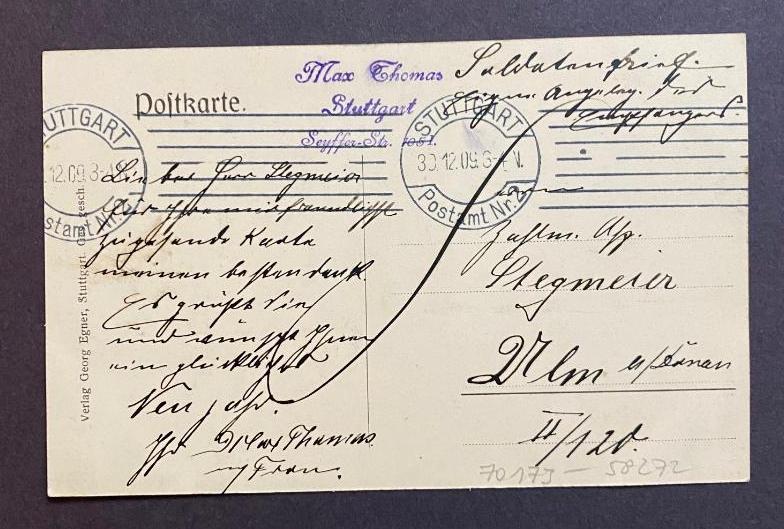 Postkarte.
Max Thomas
Stuttgart
Seyffer-Str. 105 I.
Soldatenbrief.
Eigne Angeleg. des
Empfängers.
STUTTGART
12.09. 3-4 N.
Postamt Nr. 2
STUTTGART
30.12.09. 3-4 N.
Postamt Nr. 2
Herr Stegmeier
Für Ihre mir freundlichst
zugesandte Karte
meinen besten Dank.
Es grüßt Sie
und wünscht Ihnen
ein glückliches
Neu Jahr.
Ihr Max Thomas
u/ Frau.
Herrn
Zahlm. Asp.
Stegmeier
Ulm a/Donau
II/120.
70173 — 58272
Verlag Georg Egner, Stuttgart. Ges. gesch.